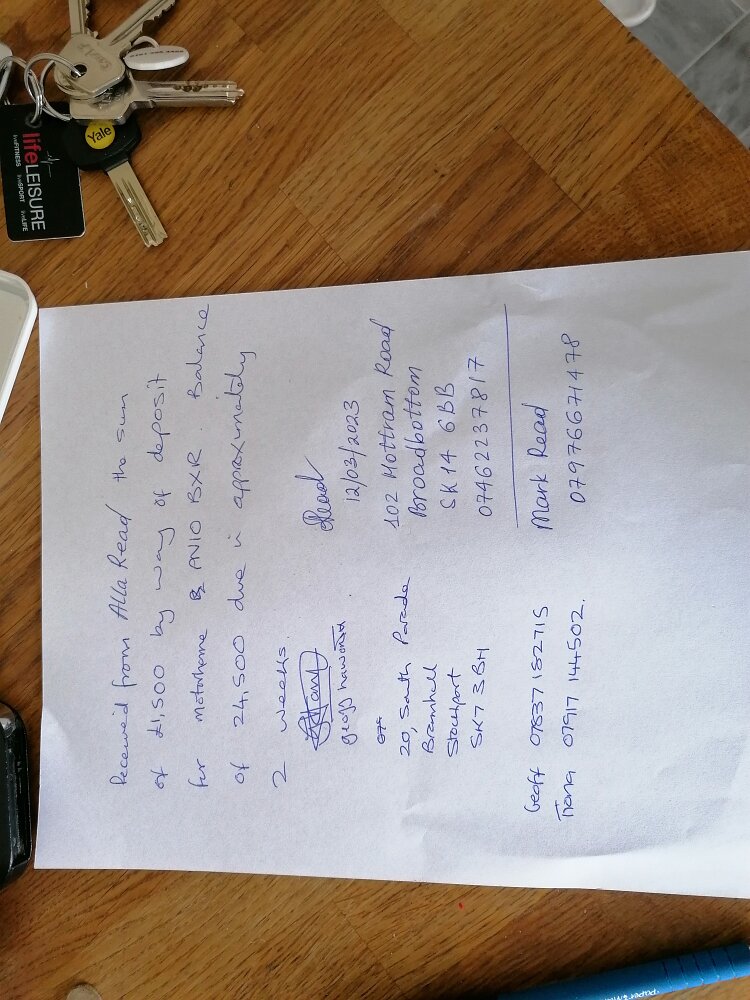 Received from Alla Read the sum
of £1,500 by way of deposit
for motorhome AN10 BXR. Balance
of 24,500 due in approximately
2 weeks.
geoff haworth
20, South Parade
Bramhall
Stockport
SK7 3BH
Geoff 07837 182715
Tiana 07917 144502.
Read
12/03/2023
102 Hottram Road
Broadbottom
SK14 6BB
07462237817
Mark Read
07976671478
lifeLEISURE
liveFITNESS liveSPORT liveLIFE
Yale